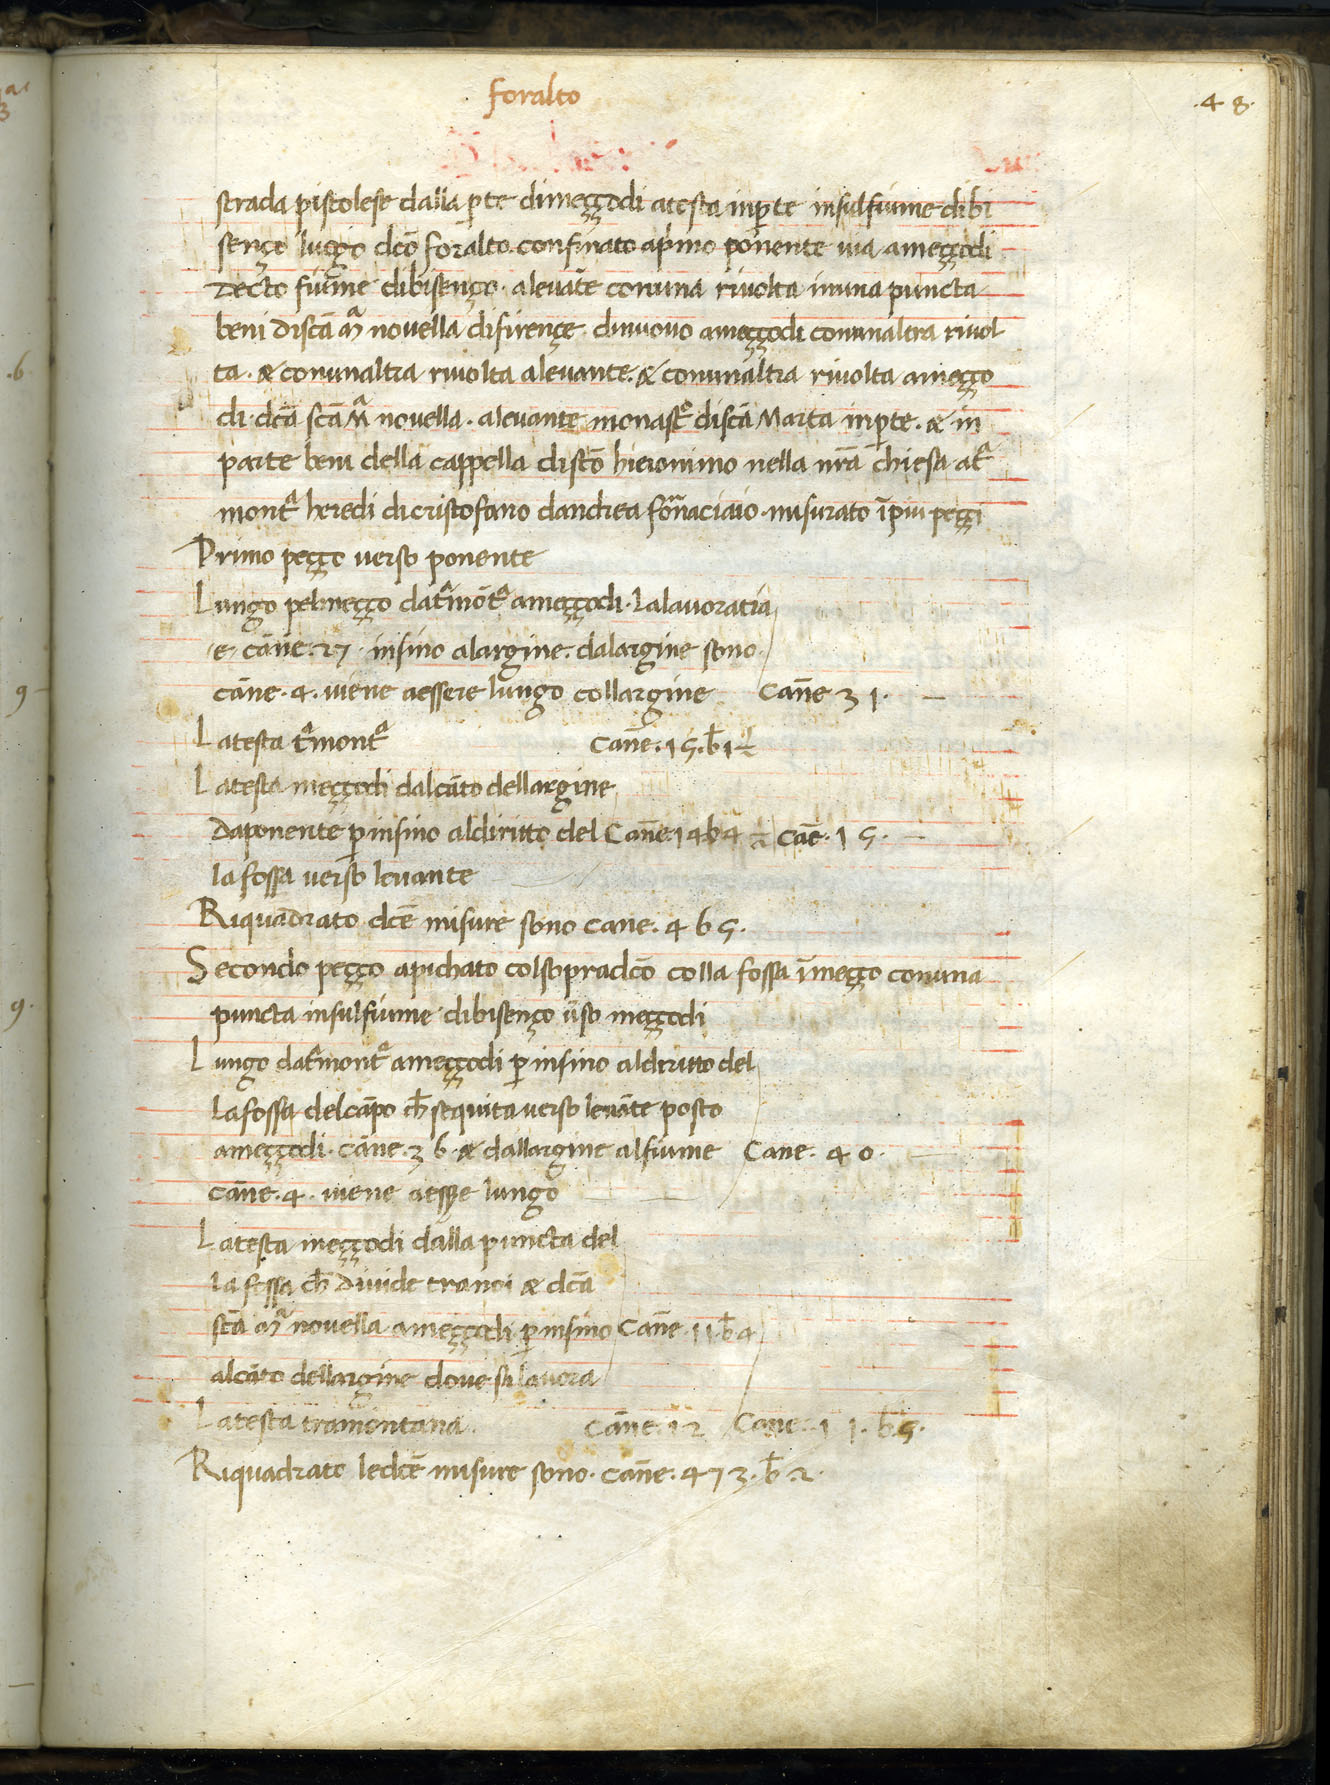 foralto
.48.
strada pistolese dalla pte dimeççodi atesta inpte insulfiume dibi
sençe luogo dcō foralto. confinato aprimo ponente via ameççodi
decto fiūme dibisençe. alevāte conuna rivolta inuna puncta
beni discā Mᵃ novella difirençe. dinuovo ameççodi conunaltra rivol
ta. & conunaltra rivolta alevante. & conunaltra rivolta ameçço
di. dcā scā Mᵃ novella. alevante monastᵒ discā Marta inpte. & in
parte beni della cappella discō hieronimo nella nrā chiesa atᵃ
montᵃ heredi dicristofano dandrea fōnaciaio. misurato īpiu peççi
Primo peçço verso ponente
Lungo pelmeçço datᵃmōtᵃ ameççodi. lalavoratia
e cāne. 27. insino alargine. dalargine sono
cāne. 4. viene aessere lungo collargine Canē 31. —
Latesta tᵃmontᵃ canē. 15. b̄ 1½
Latesta meççodi dalcāto dellargine
daponente pinsino aldiritto del Canē 14 b 4 Canē. 15. —
la fossa verso levante
Riquadrato dcē misure sono cane. 465.
Secondo peçço apichato colsopradcō colla fossa īmeçço conuna
puncta insulfiume dibisenço ūso meççodi
Lungo datᵃmontᵃ ameççodi p insino aldiritto del
la fossa delcāpo ch̄ sequita verso levāte posto
ameççodi. cāne. 36. & dallargine alfiume Cane. 40.
cāne. 4. viene aesse lungo
Latesta meççodi dalla puncta del
la fossa ch̄ divide tranoi & dcā
scā Mᵃ novella ameççodi pinsino Canē. 11. b̄ 4
alcāto dellargine dove silavora
Latesta tramontana. Cāne. 12 Cane. 11. b 5.
Riquadrato ledcē misure sono. canē. 473. b̄. 2.